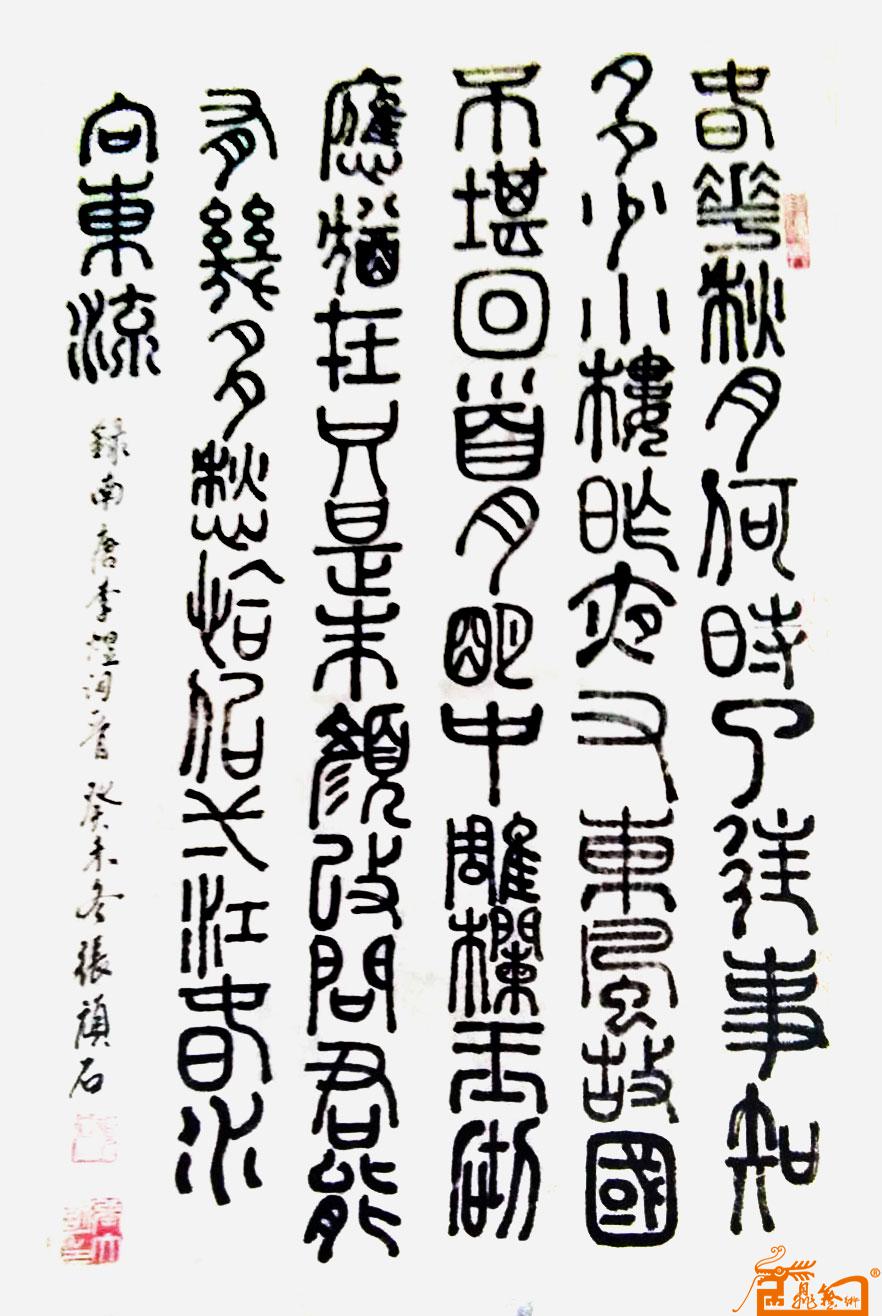 春華秋月何時了往事知
多少小樓昨夜又東風故國
不堪回首月明中雕欄玉砌
應猶在只是朱顏改問君能
有幾多愁恰似弌江春水
向東流
錄南唐李煜詞一首 癸未冬張頑石